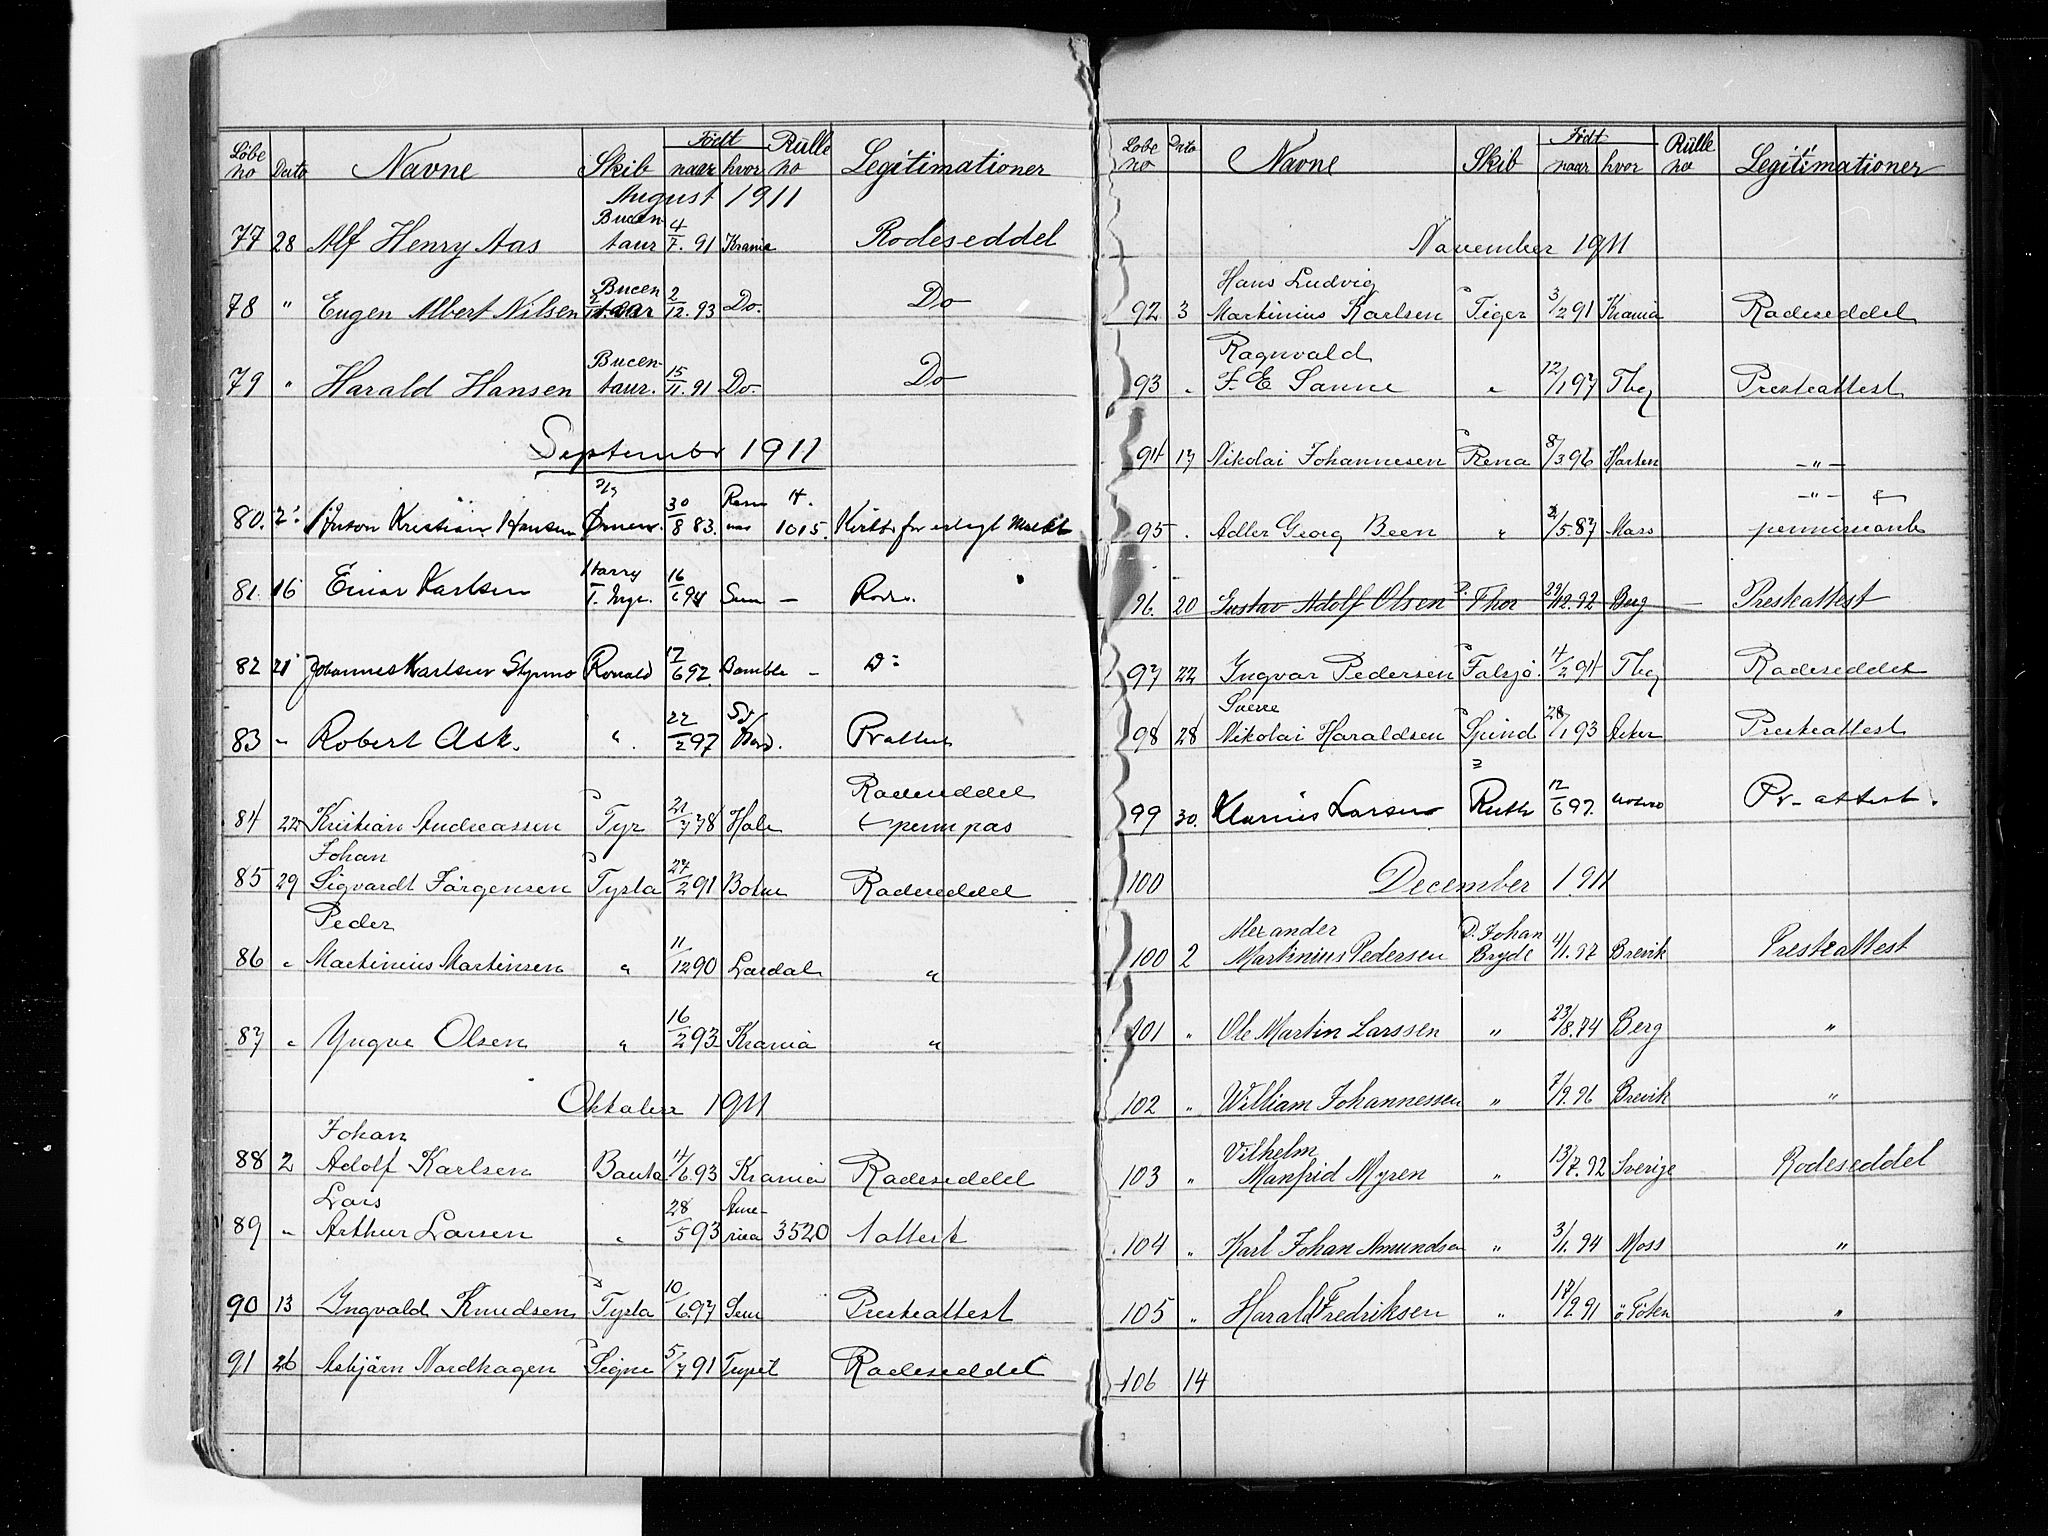 Løbe no Dato Navne Skib Født naar hvor Rulle no Legitimationer
August 1911
Bucen-
77 28 Alf Henry Aas taur 4/7. 91 Krania Rodeseddel
Bucen
78 " Eugen Albert Nilsen taur 2/12. 93 Do. Do
Bucen-
79 " Harald Hansen taur. 15/11. 91 Do. Do
September 1911
80. Kristian Hansen Ørnen. 30/8 83. 1015.
Harry
81. 16 Einar Karlsen T. Inge. 16/6 94 Sem – Rode.
82 21 Johannes Karlsen Ronald 17/6 92. Bamble –
83 " Robert Ask. " 22/2 97 Prattest
Radeseddel
84 22 Kristian Andreassen Tyr 21/7 78 Hole perm pas
Johan
85 29 Sigvardt Jørgensen Tysla 24/2 91 Botne Radeseddel
Peder
86 " Martinius Martinsen " 11/12 90 Lardal "
87 " Yngve Olsen " 16/2 93 Krania "
Oktober 1911
Johan
88 2 Adolf Karlsen Bauta 4/6. 93 Krania Radeseddel
Lars Ame-
89 " Arthur Larsen " 28/5 93 rica 3520 1 attest
90 13 Yngvald Knudsen Tysla 10/6 97 Sem Presteattest
91 26 Asbjørn Nordhagen Signe 5/7 91 Tryset Radeseddel
Løbe no Dato Navne Skib Født naar hvor Rulle no Legitimationer
November 1911
Hans Ludvig
92 3 Martinius Karlsen Tiger 3/2 91 Krania Radeseddel
Ragnvald
93 " F. E Sanne " 12/1 97 Tbg Presteattest
94 17 Nikolai Johannesen Rena 8/3 96 Horten – " –
– " –
95 . Adler Georg Been " 2/5. 87 Moss
96. 20 Gustav Adolf Olsen Thor 29/12. 92 Berg Presteattest
97 22 Yngvar Pedersen Falsjø. 4/2 94 Tbg Radeseddel
Sverre
98 28 Nikolai Haraldsen Spind 28/1 93 Aker Presteattest
99 30. Klarius Larsen Ruth 12/6 97. Pr-attest.
100 December 1911
Alexander D. Johan
100 2 Martinius Pedersen Bryde 4/11. 97 Brevik Presteattest
101 " Ole Martin Larssen " 23/8. 74 Berg "
102 " William Johannessen " 7/9. 96 Brevik "
Vilhelm
103 " Manfrid Myren " 13/7. 92 Sverige Rodeseddel
104 " Karl Johan Amundsen " 3/11. 94 Moss "
105 " Harald Fredriksen " 17/9. 91 ö Toten "
106 14